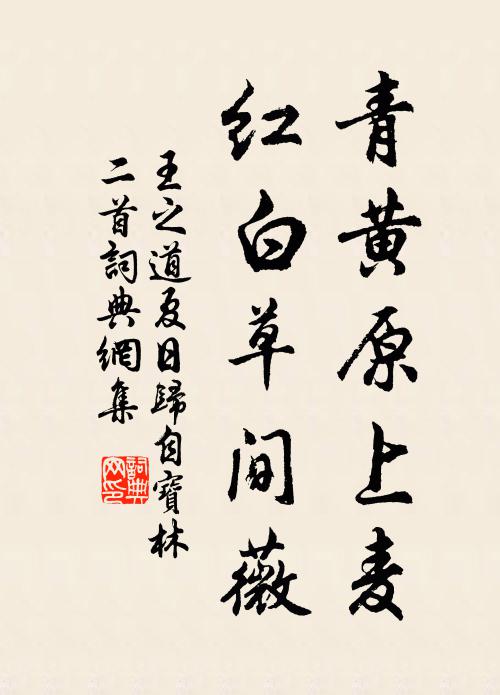 青黃原上麦
紅白草間薇
王之道夏日歸自寶林
二首詞典網集
詞典網印